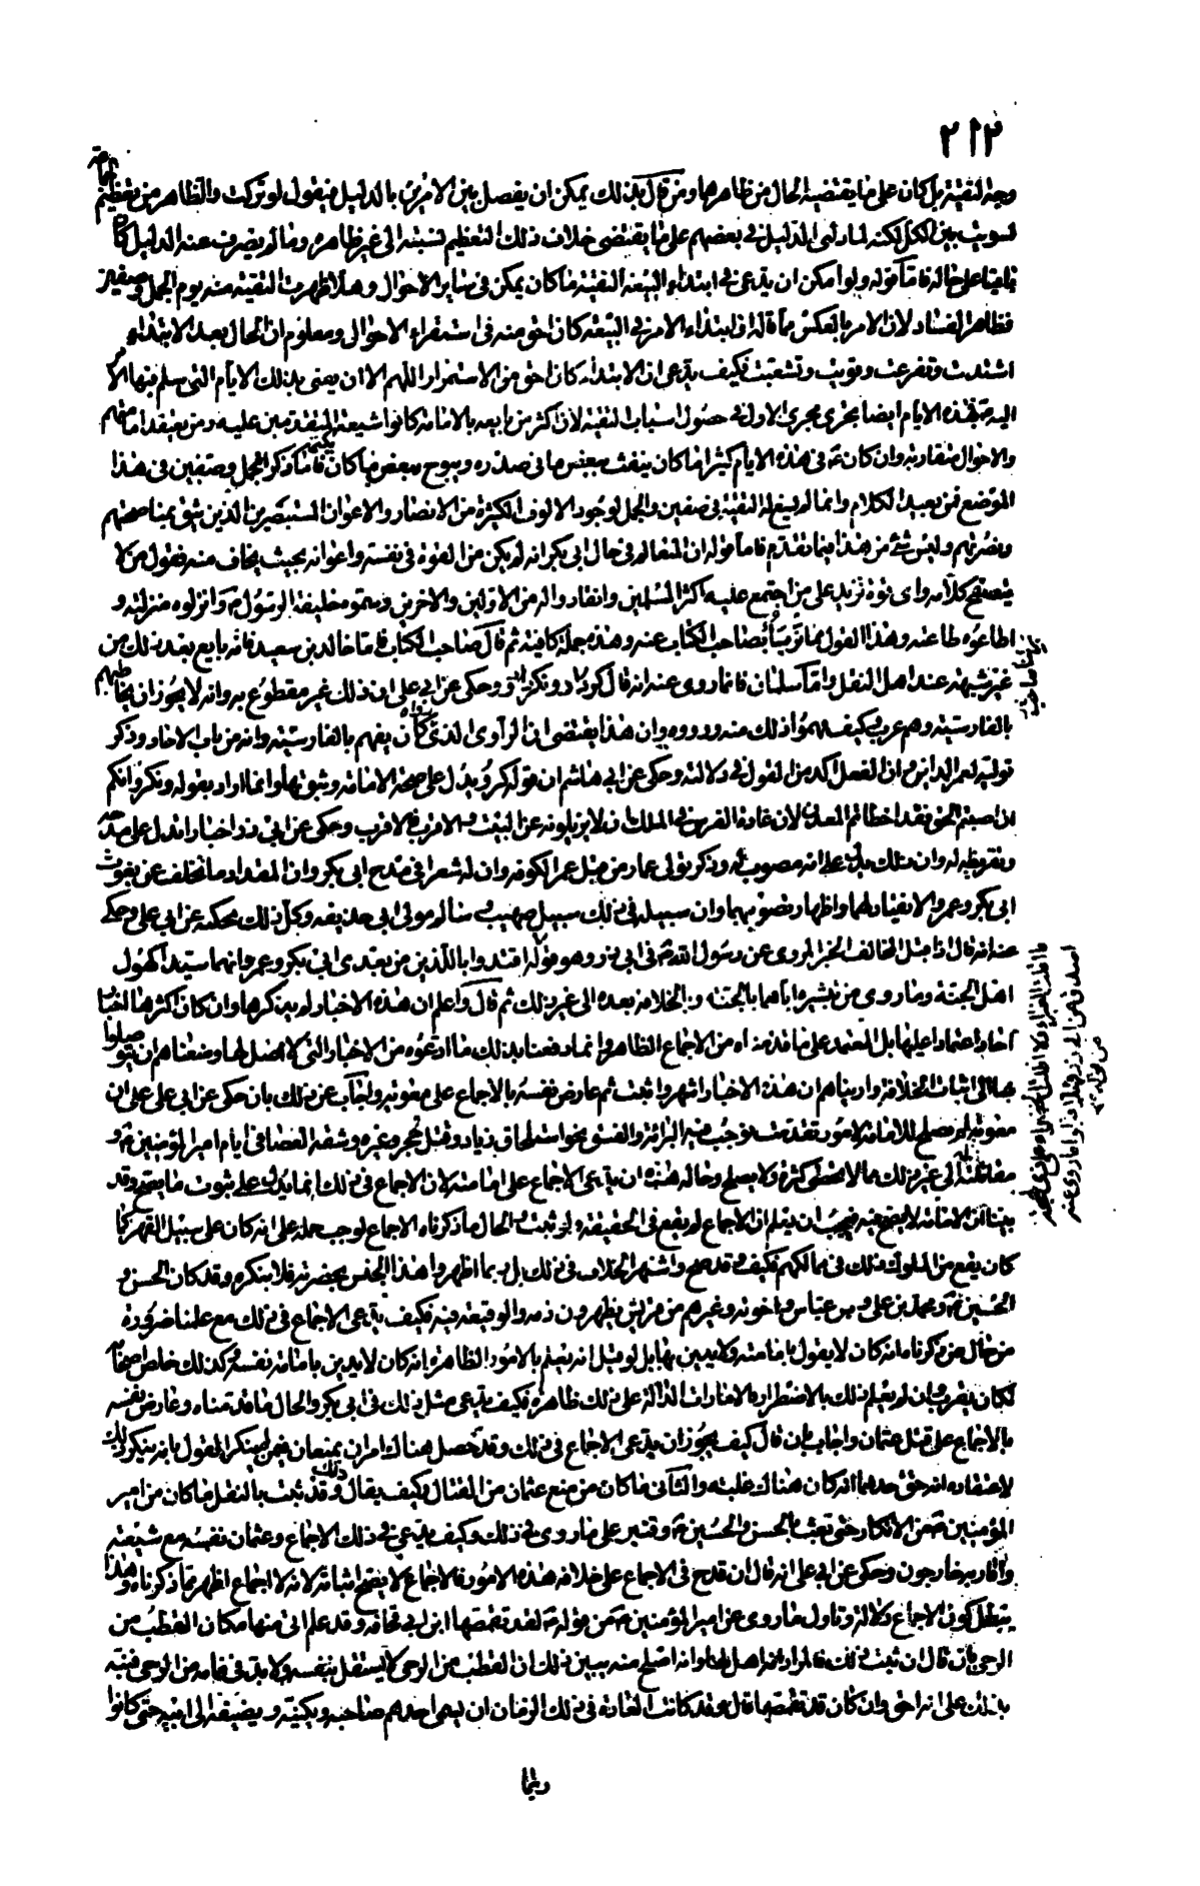 ٢١٢
وجه التقية بل كان على ما يقتضيه الحال من ظاهرها ومن قال بذلك يمكن ان يفصل بين الامرين بالدليل فيقول لو تركت والظاهر من تعظيم
لسويت بين الكل لكنه لما دلنى الدليل فى بعضهم على ما يقتضى خلاف ذلك التعظيم نسبته الى غير ظاهره وما لم يصرف عنه الدليل كان
باقيا على حاله فاما قوله ولو امكن ان يدعى فى ابتداء البيعة التقية ما كان يمكن فى ساير الاحوال وهلا ظهرت التقية منه يوم الجمل وصفين
فظاهر الفساد لان الامر بالعكس مما قاله اذا ابتداء الامر فى البيعة كان اخوف منه فى استقراء الاحوال ومعلوم ان الحال بعد الابتداء
اشتدت وتفرعت وقويت وتشعبت فكيف يدعى ان الابتداء كان اخوف من الاستمرار اللهم الا ان يعنى بذلك الايام التى سلم فيها الامر
اليه فهذه الايام ايضا تجرى مجرى الاول فى حصول اسباب التقية لان اكثر من بايعه بالامامة كانوا شيعة المتقدمين عليه ومن يعتقد امامتهم
والاحوال متقاربة وان كان فى هذه الايام كثيرا ما كان ينفث ببعض ما فى صدره ويبوح ببعض ما كان يكتمه فاما ذكر الجمل وصفين فى هذا
الموضع فمن بعيد الكلام وانما لم يسغ له التقية فى صفين والجمل لوجود الالوف الكثيرة من الانصار والاعوان المستبصرين الذين يثق بمناصحتهم
ونصرتهم وليس شئ من هذا فيما تقدم فاما قوله ان المتعالم فى حال ابى بكر انه لم يكن من القوة فى نفسه واعوانه بحيث يخاف منه فقول من لا
يتصفح كلامه واى قوة تزيد على من اجتمع عليه اكثر المسلمين وانقاد له من الاولين والاخرين وسموه خليفة الرسول وانزلوه منزلته و
اطاعوه طاعته وهذا القول مما نربأ بصاحب الكتاب عنه وهذه جملة كافية ثم قال صاحب الكتاب فاما خالد بن سعيد فانه بايع بعد ذلك من
غير شبهة عند اهل النقل واما سلمان فانما روى عنه انه قال كردا ونكردا وحكى عن ابى على ان ذلك غير مقطوع به وانه لا يجوز ان يخاطبهم
بالفارسية وهم عرب وكيف فهموا ذلك منه ورووه وان هذا يقتضى ان الراوى الذى رواه كان يفهم بالفارسية وانه من باب الاحاد وذكر
توليه لعمر المداين وان الفعل آكد من القول فى دلالته وحكى عن ابى هاشم ان قوله كرد يدل على صحة الامامة وثبوتها وانما اراد بقوله ونكرد انكم
ان اصبتم الحق فقد اخطاتم المعدن لان عادة الفرس فى الملك ان لا يزيلونه عن البيت والاقرب فالاقرب وحكى عن ابى ذر اخبارا تدل على مدحه
وتقريظه له وان ذلك يدل على انه مصوب له وذكر تولى عمار من قبل عمر الكوفة وان له شعرا فى مدح ابى بكر وان المقداد ما تخلف عن بعوث
ابى بكر وعمر والانقياد لهما واظهار رضوبهما وان سبيله فى ذلك سبيل صهيب وسالم مولى ابى حذيفة وكل ذلك محكيه عن ابى على وحكى
عنه انه قال اذا قبل المخالف الخبر المروى عن رسول الله فى ابى ذر وهو قوله اقتدوا بالذين من بعدى ابى بكر وعمر وانهما سيدا كهول
اهل الجنة وما روى من تبشيره اياهما بالجنة وبالخلافة بعده الى غير ذلك ثم قال واعلم ان هذه الاخبار لم يذكرها وان كان اكثرها
آحادا اعتمادا عليها بل المعتمد على ما قدمناه من الاجماع الظاهر وانما دفعنا بذلك ما ادعوه من الاخبار التى لا اصل لها ومنعناهم ان يتوصلوا
بها الى اثبات الخلافة واريناهم ان هذه الاخبار اشهر واثبت ثم عارض نفسه بالاجماع على معوية واجاب عن ذلك بان حكى عن ابى على ان
معوية لم يصلح للامامة لامور تقدمت توجب منه البرائة والفسق نحو استلحاق زياد وقتل حجر وغيره وشقه العصا فى ايام امير المؤمنين و
مقاتلته الى غير ذلك مما لا يحصى كثرة ولا يصلح وحاله هذه ان يدعى الاجماع على امامته لان الاجماع فى ذلك انما يدل على ثبوت ما يصح وقد
بينا ان الامامة لا تصح فيه فيجب ان يعلم ان الاجماع لم يقع فى الحقيقة ولو ثبت الحال ما ذكرناه الاجماع لوجب حمله على انه كان على سبيل القهر كما
كان يقع من الملوك ذلك فى ممالكهم فكيف وقد صح واشتهر الخلاف فى ذلك بل ربما اظهروا هذا الجنس بحضرته فلا ينكره وقد كان الحسن و
الحسين ومحمد بن على وبن عباس واخوته وغيرهم من قريش يظهرون ذمه والوقيعة فيه فكيف يدعى الاجماع فى ذلك مع علمنا ضرورة
من حال من ذكرناه انه كان لا يقول بامامته ولا يدين بها بل لو قيل انه يعلم بالامور الظاهرة انه كان لا يدين بامامة نفسه كذلك خاص اصحابه
لكان يقرب وان لم يعلم ذلك بالاضطرار بالامارات الدالة على ذلك ظاهرة فكيف يدعى مثل ذلك فى ابى بكر والحال ما قدمناه وعارض نفسه
بالاجماع على قتل عثمان واجاب بان قال كيف يجوز ان يدعى الاجماع فى ذلك وقد حصل هناك امران يمنعان فيمن لم ينكر القول بانه ينكر ذلك
لاعتقاده انه حق احدهما انه كان هناك غلبة والثانى ما كان من منع عثمان من القتال وكيف يقال ذلك وقد ثبت بالنقل ما كان من امير
المؤمنين من الانكار حتى بعث بالحسن والحسين وقنبر على ما روى فى ذلك وكيف يدعى فى ذلك الاجماع وعثمان نفسه مع شيعته
واقاربه خارجون وحكى عن ابى على انه قال ان قدح فى الاجماع على خلافه هذه الامور فالاجماع لا يصح اثباته لانه لا اجماع اظهر مما ذكرناه وهذا
يبطل كون الاجماع دلالة وتاول ما روى عن امير المؤمنين من قوله لقد تقمصها ابن ابى قحافة وقد علم انى منها مكان القطب من
الرحى بان قال ان ثبت ذلك فالمراد انه اهل لها وانه اصلح منه يبين ذلك ان القطب من الرحى لا يستقل بنفسه ولا بد فى تمامه من الرحى فنبه
بذلك على انه احق وان كان قد تقمصها قال وقد كانت العادة فى ذلك الزمان ان يسمى احدهم صاحبه ويكنيه ويضيفه الى ابيه حتى كانوا
وربما